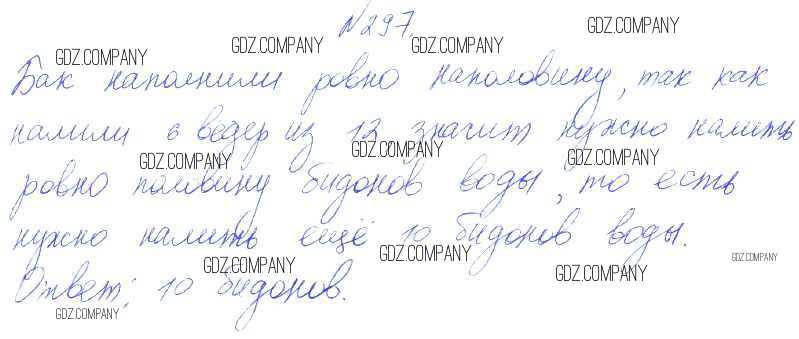 №297.
Бак наполнили ровно наполовину, так как
налили 6 ведер из 12, значит нужно налить
ровно половину бидонов воды, то есть
нужно налить ещё 10 бидонов воды.
Ответ: 10 бидонов.
GDZ.COMPANY
GDZ.COMPANY
GDZ.COMPANY
GDZ.COMPANY
GDZ.COMPANY
GDZ.COMPANY
GDZ.COMPANY
GDZ.COMPANY
GDZ.COMPANY
GDZ.COMPANY
GDZ.COMPANY
GDZ.COMPANY